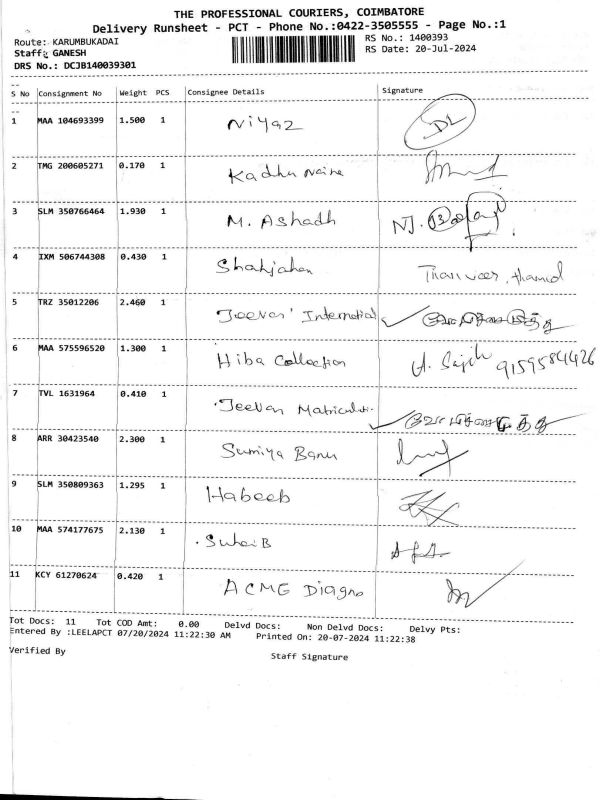 THE PROFESSIONAL COURIERS, COIMBATORE
Delivery Runsheet - PCT - Phone No.:0422-3505555 - Page No.:1
Route: KARUMBUKADAI RS No.: 1400393
Staff: GANESH RS Date: 20-Jul-2024
DRS No.: DCJB140039301
S No Consignment No Weight PCS Consignee Details Signature
1 MAA 104693399 1.500 1 Niyaz DL
2 TMG 200605271 0.170 1 Kadhar
3 SLM 350766464 1.930 1 M. Ashadh NJ. Balaji
4 IXM 506744308 0.430 1 Shahjahan
5 TRZ 35012206 2.460 1 Jeevan International
6 MAA 575596520 1.300 1 Hiba Collection 9159584426
7 TVL 1631964 0.410 1 Jeevan
8 ARR 30423540 2.300 1 Sumiya Banu
9 SLM 350809363 1.295 1 Habeeb
10 MAA 574177675 2.130 1 SuhaiB
11 KCY 61270624 0.420 1 ACME Diagno
Tot Docs: 11 Tot COD Amt: 0.00 Delvd Docs: Non Delvd Docs: Delvy Pts:
Entered By :LEELAPCT 07/20/2024 11:22:30 AM Printed On: 20-07-2024 11:22:38
Verified By Staff Signature